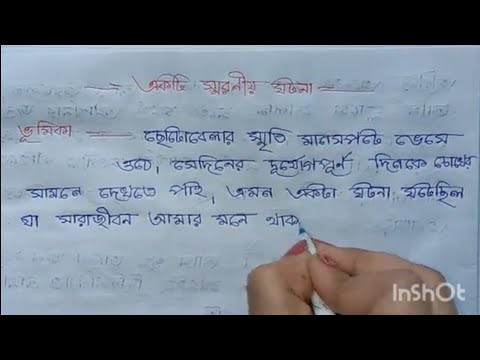 একটি স্মরনীয় ঘটনা
ভূমিকা — ছোটোবেলার স্মৃতি মানসপটে ভেসে
ওঠে, সেদিনের দুর্যোগপূর্ণ দিনকে চোখের
সামনে দেখতে পাই, এমন একটা ঘটনা ঘটেছিল
যা সারাজীবন আমার মনে থাক
InShOt